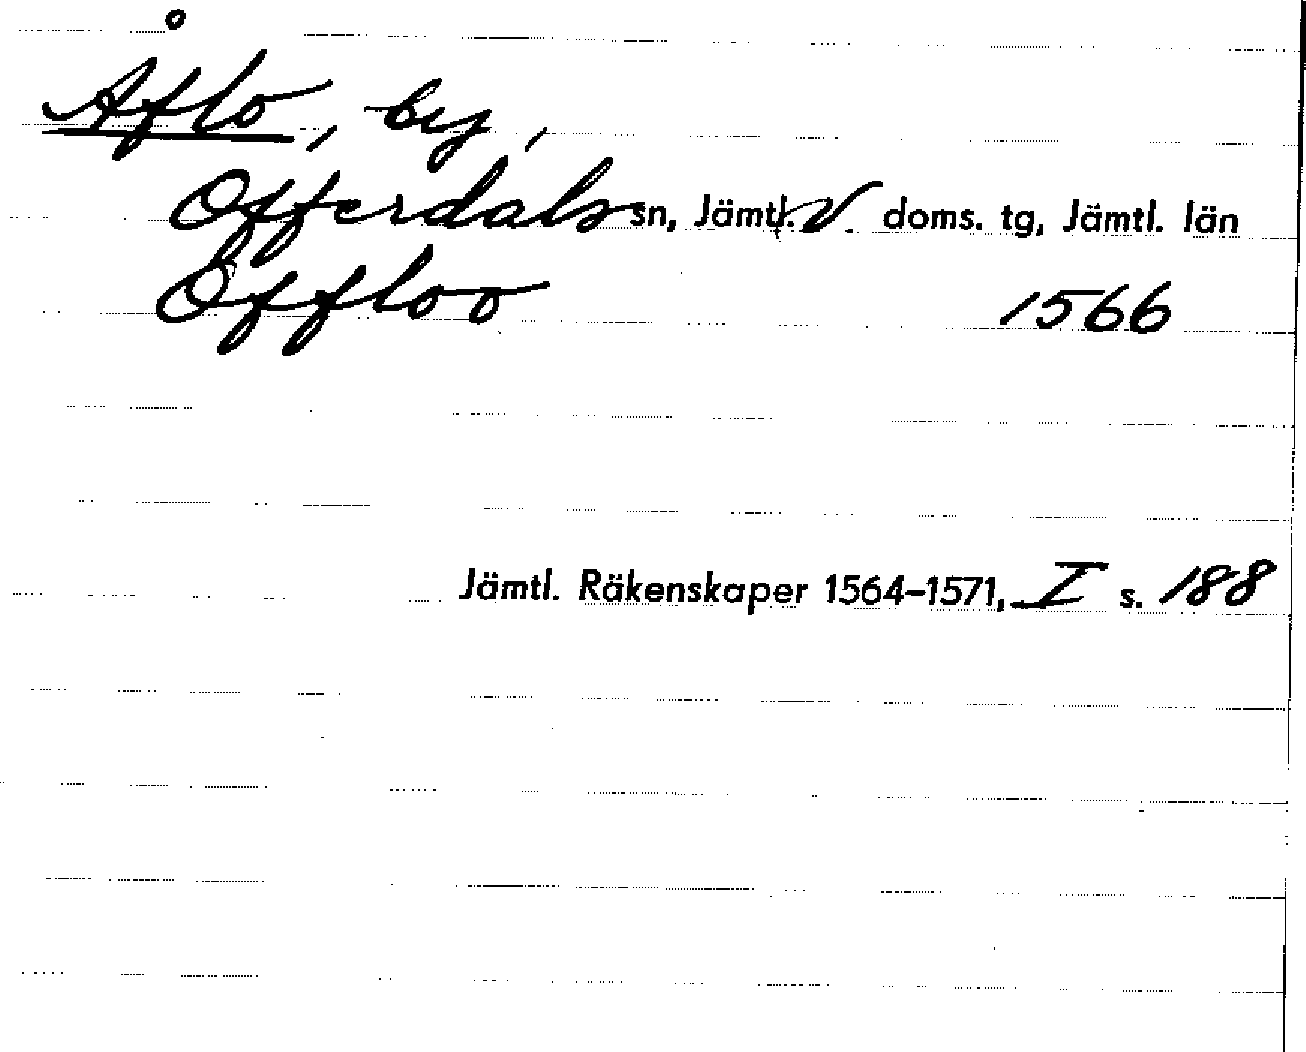 Åflo, by,
Offerdals sn, Jämtl. V. doms. tg, Jämtl. län
Offloo 1566
Jämtl. Räkenskaper 1564–1571, I s. 188